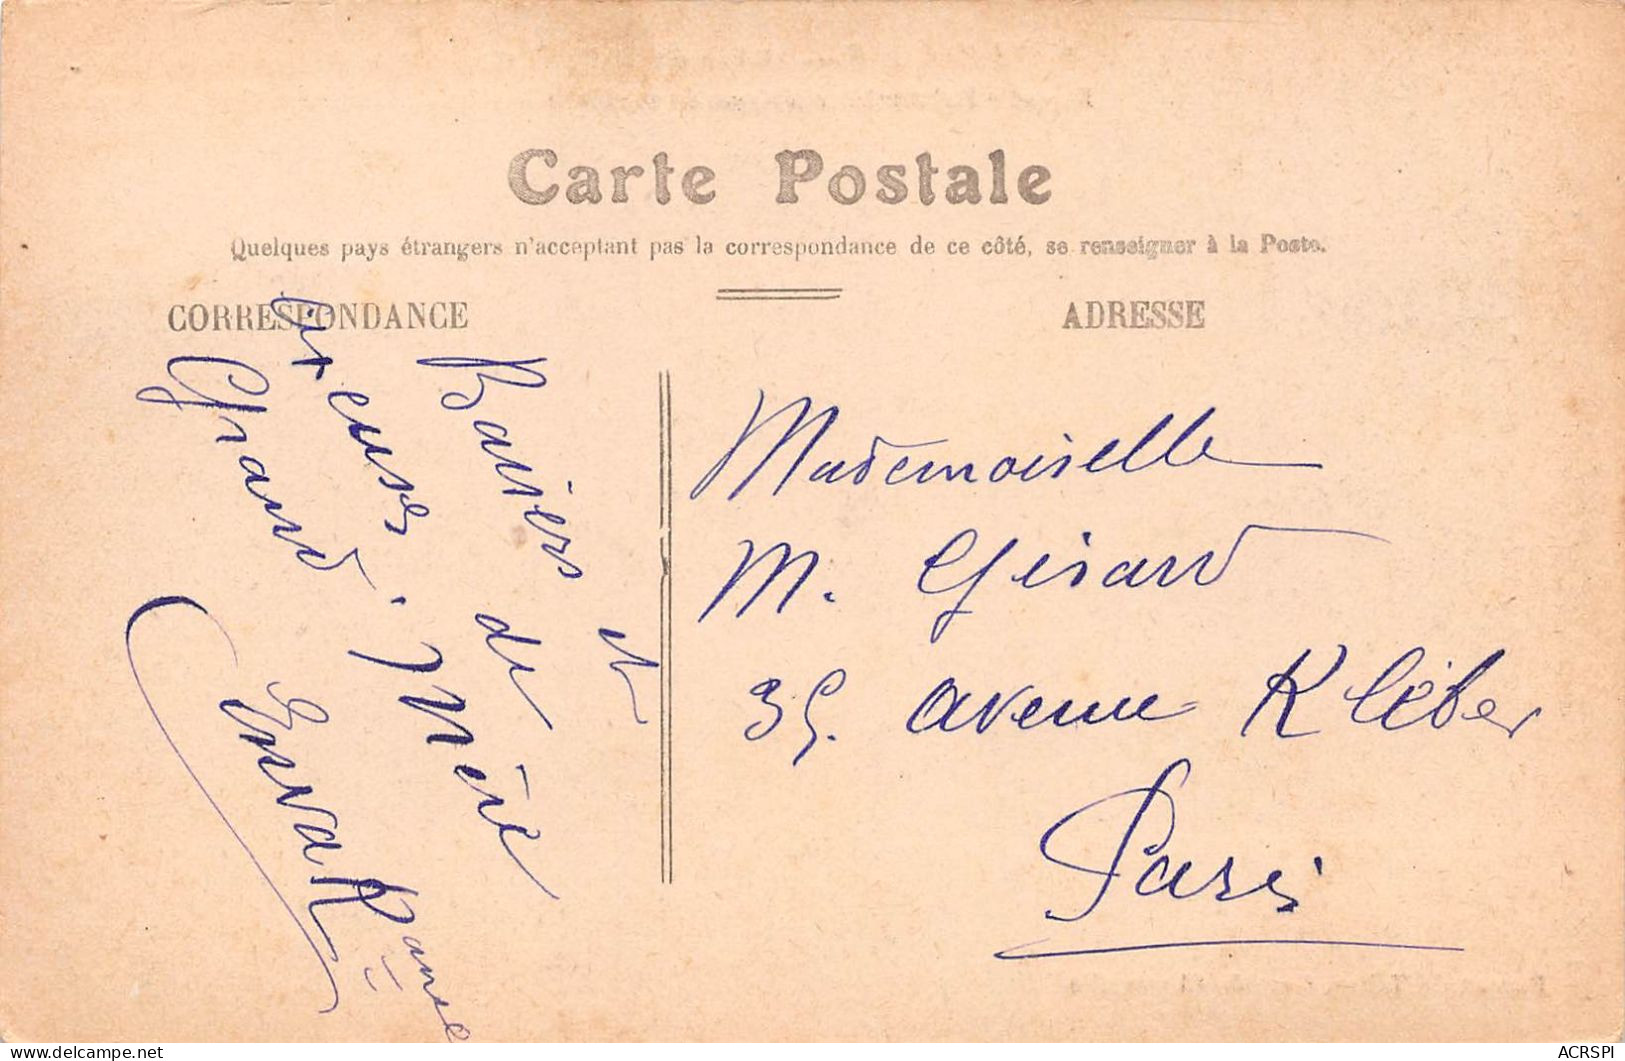 Carte Postale
Quelques pays étrangers n'acceptant pas la correspondance de ce côté, se renseigner à la Poste.
CORRESPONDANCE
ADRESSE
Baisers et
de
Grand. Mère
Mademoiselle
M. Gérard
35. avenue Kléber
Paris
ACRSPI